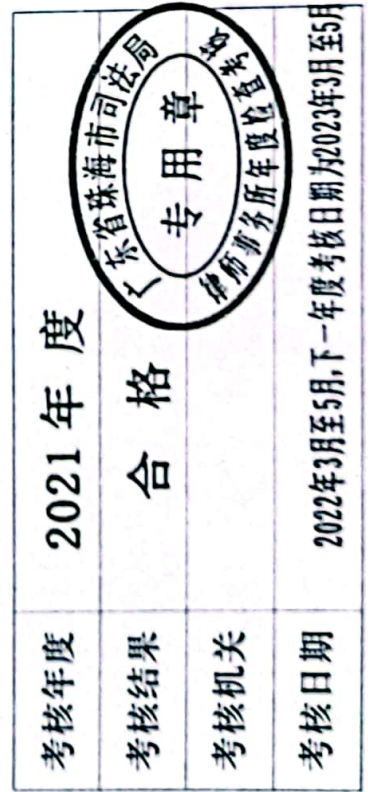 考核年度 2021年度
考核结果 合格
考核机关
广东省珠海市司法局
专用章
律师事务所年度检查考核
考核日期 2022年3月至5月,下一年度考核日期为2023年3月至5月